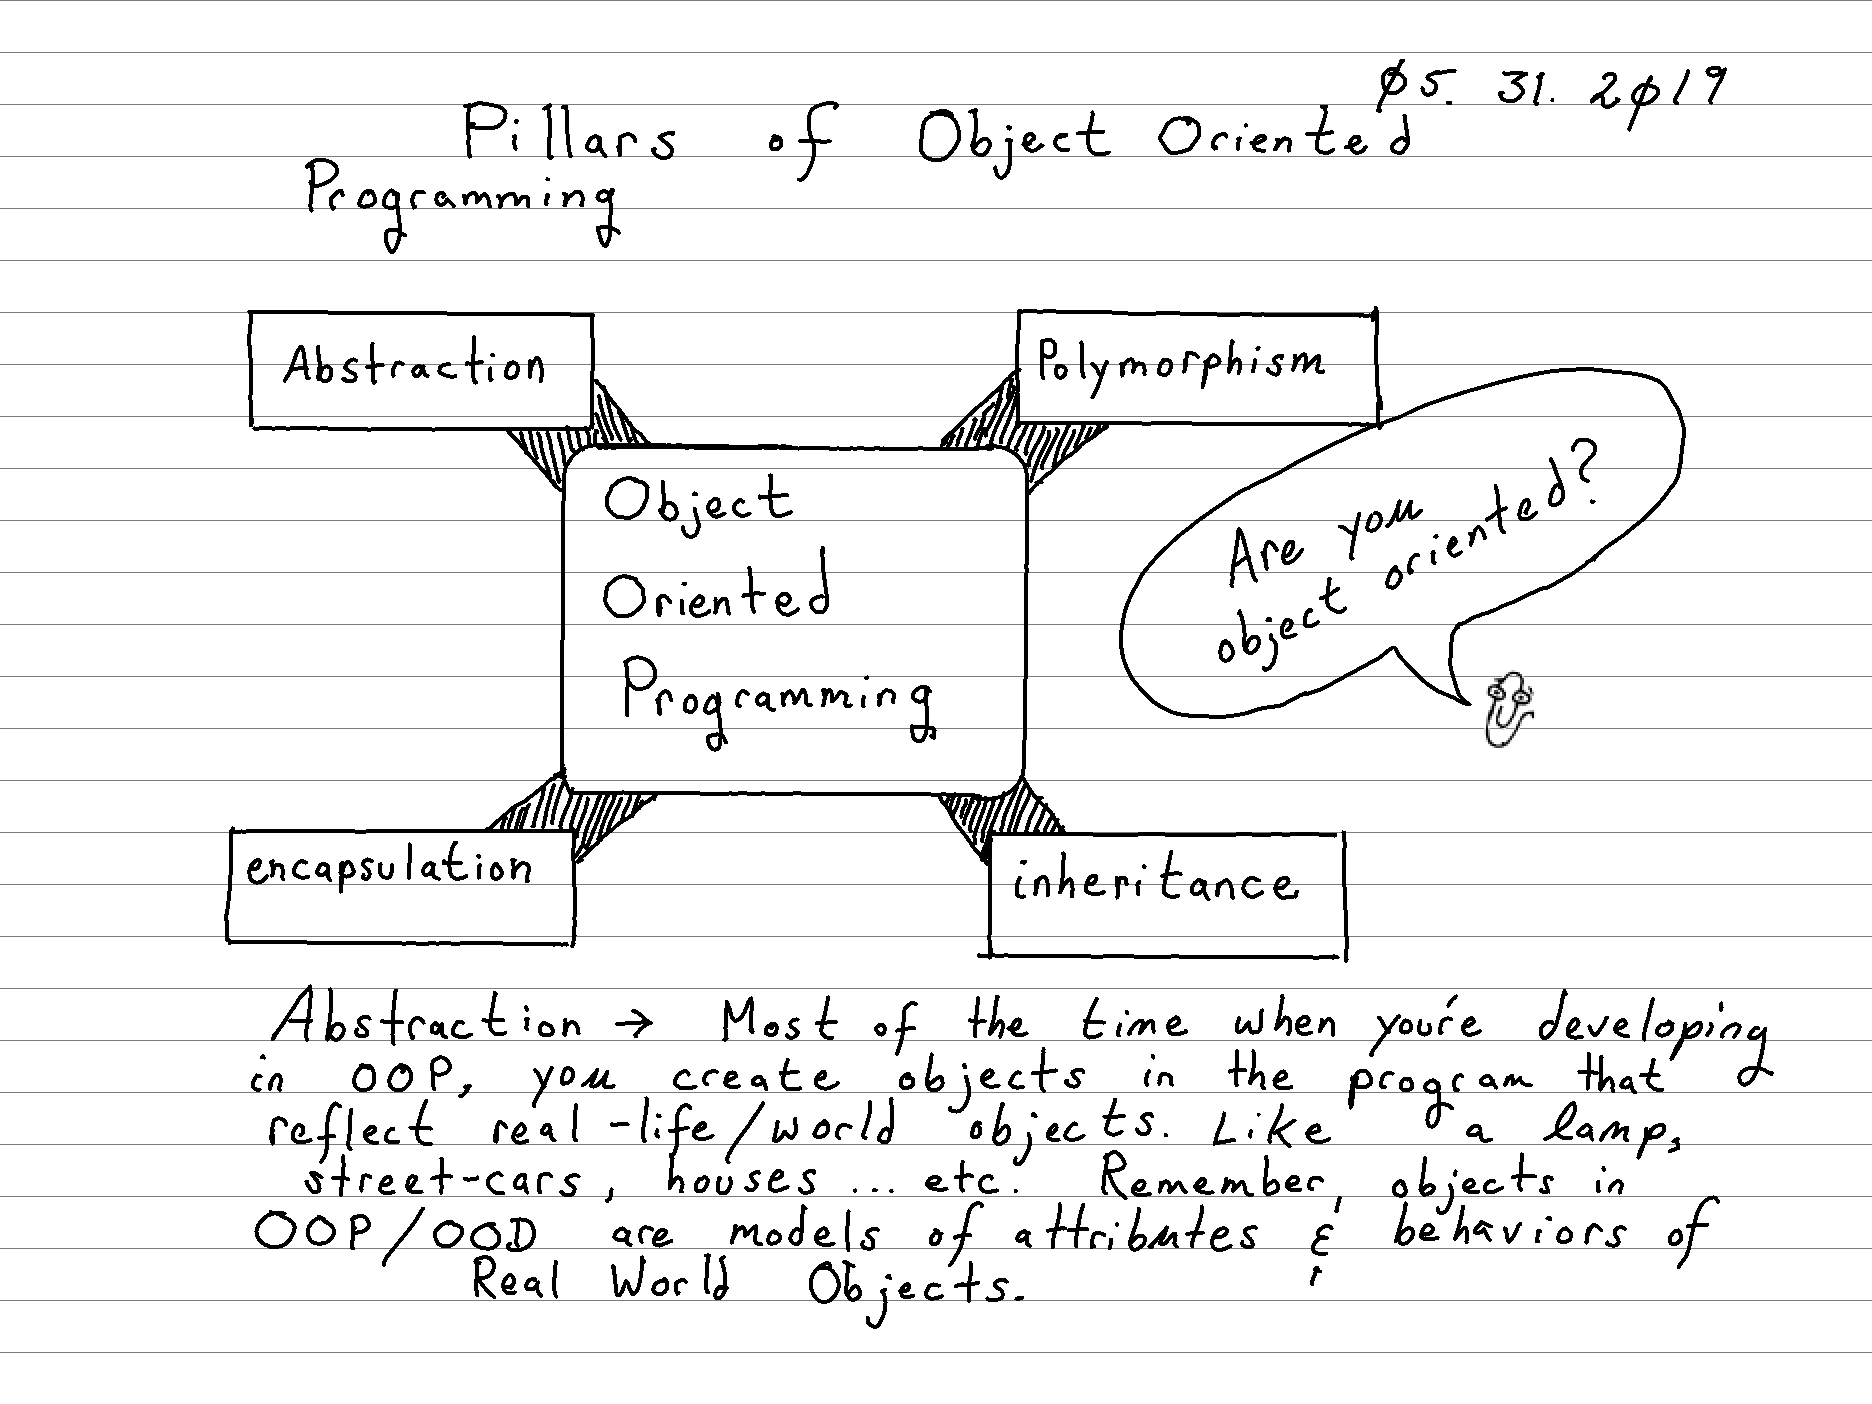 Ø5. 31. 2Ø19
Pillars of Object Oriented
Programming
Abstraction
Polymorphism
Object
Oriented
Programming
Are you
object oriented?
encapsulation
inheritance
Abstraction → Most of the time when you're developing
in OOP, you create objects in the program that
reflect real-life/world objects. Like a lamp,
street-cars, houses ... etc. Remember, objects in
OOP/OOD are models of attributes & behaviors of
Real World Objects.